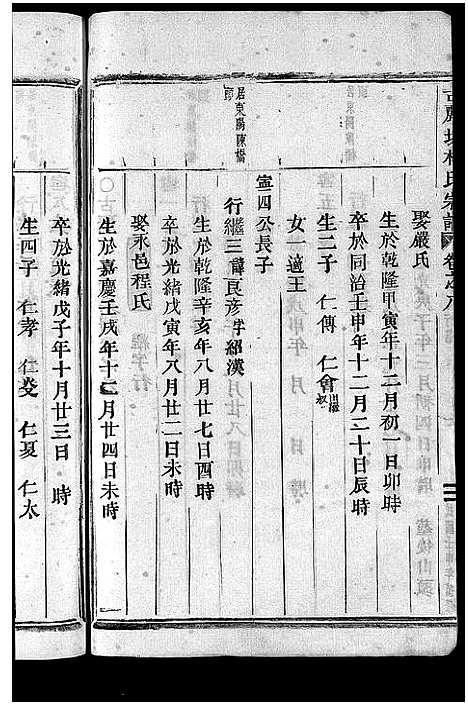 娶嚴氏
生於乾隆甲寅年十二月初一日卯時
卒於同治壬申年十二月二十日辰時
生二子 仁傳 仁會出繼
女一適王
寍四公長子
居東陽陳橋頭
行繼三諱良彥字紹漢
生於乾隆辛亥年八月廿七日酉時
卒於光緒戊寅年八月廿二日未時
娶永邑程氏
生於嘉慶壬戌年十二月廿四日未時
卒於光緒戊子年十月廿三日 時
生四子 仁孝 仁燮 仁夏 仁太